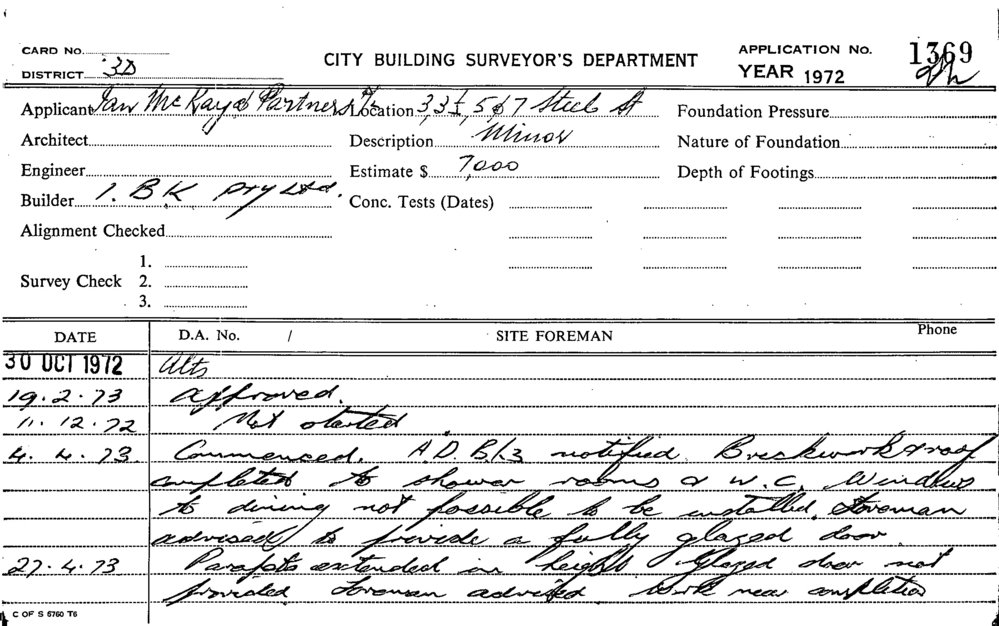 CARD No.
CITY BUILDING SURVEYOR'S DEPARTMENT
APPLICATION No. 1369
DISTRICT 3D
YEAR 1972
Applicant Ian McKay & Partners Location 3, 3½, 5 & 7 Steel St Foundation Pressure
Architect Description Minor Nature of Foundation
Engineer Estimate $ 7,000 Depth of Footings
Builder I. B K Pty Ltd. Conc. Tests (Dates)
Alignment Checked
1.
Survey Check 2.
3.
DATE D.A. No. / SITE FOREMAN Phone
30 OCT 1972 Alts
19.2.73 approved.
11.12.72 Not started
4.4.73. Commenced. A.D. notified. Brickwork & roof
completed to shower rooms & W.C. Windows
to dining not possible to be installed. Foreman
advised to provide a fully glazed door.
27.4.73 Parapets extended in height. Glazed door not
provided. Foreman advised. Work near completion
C OF S 6760 T6